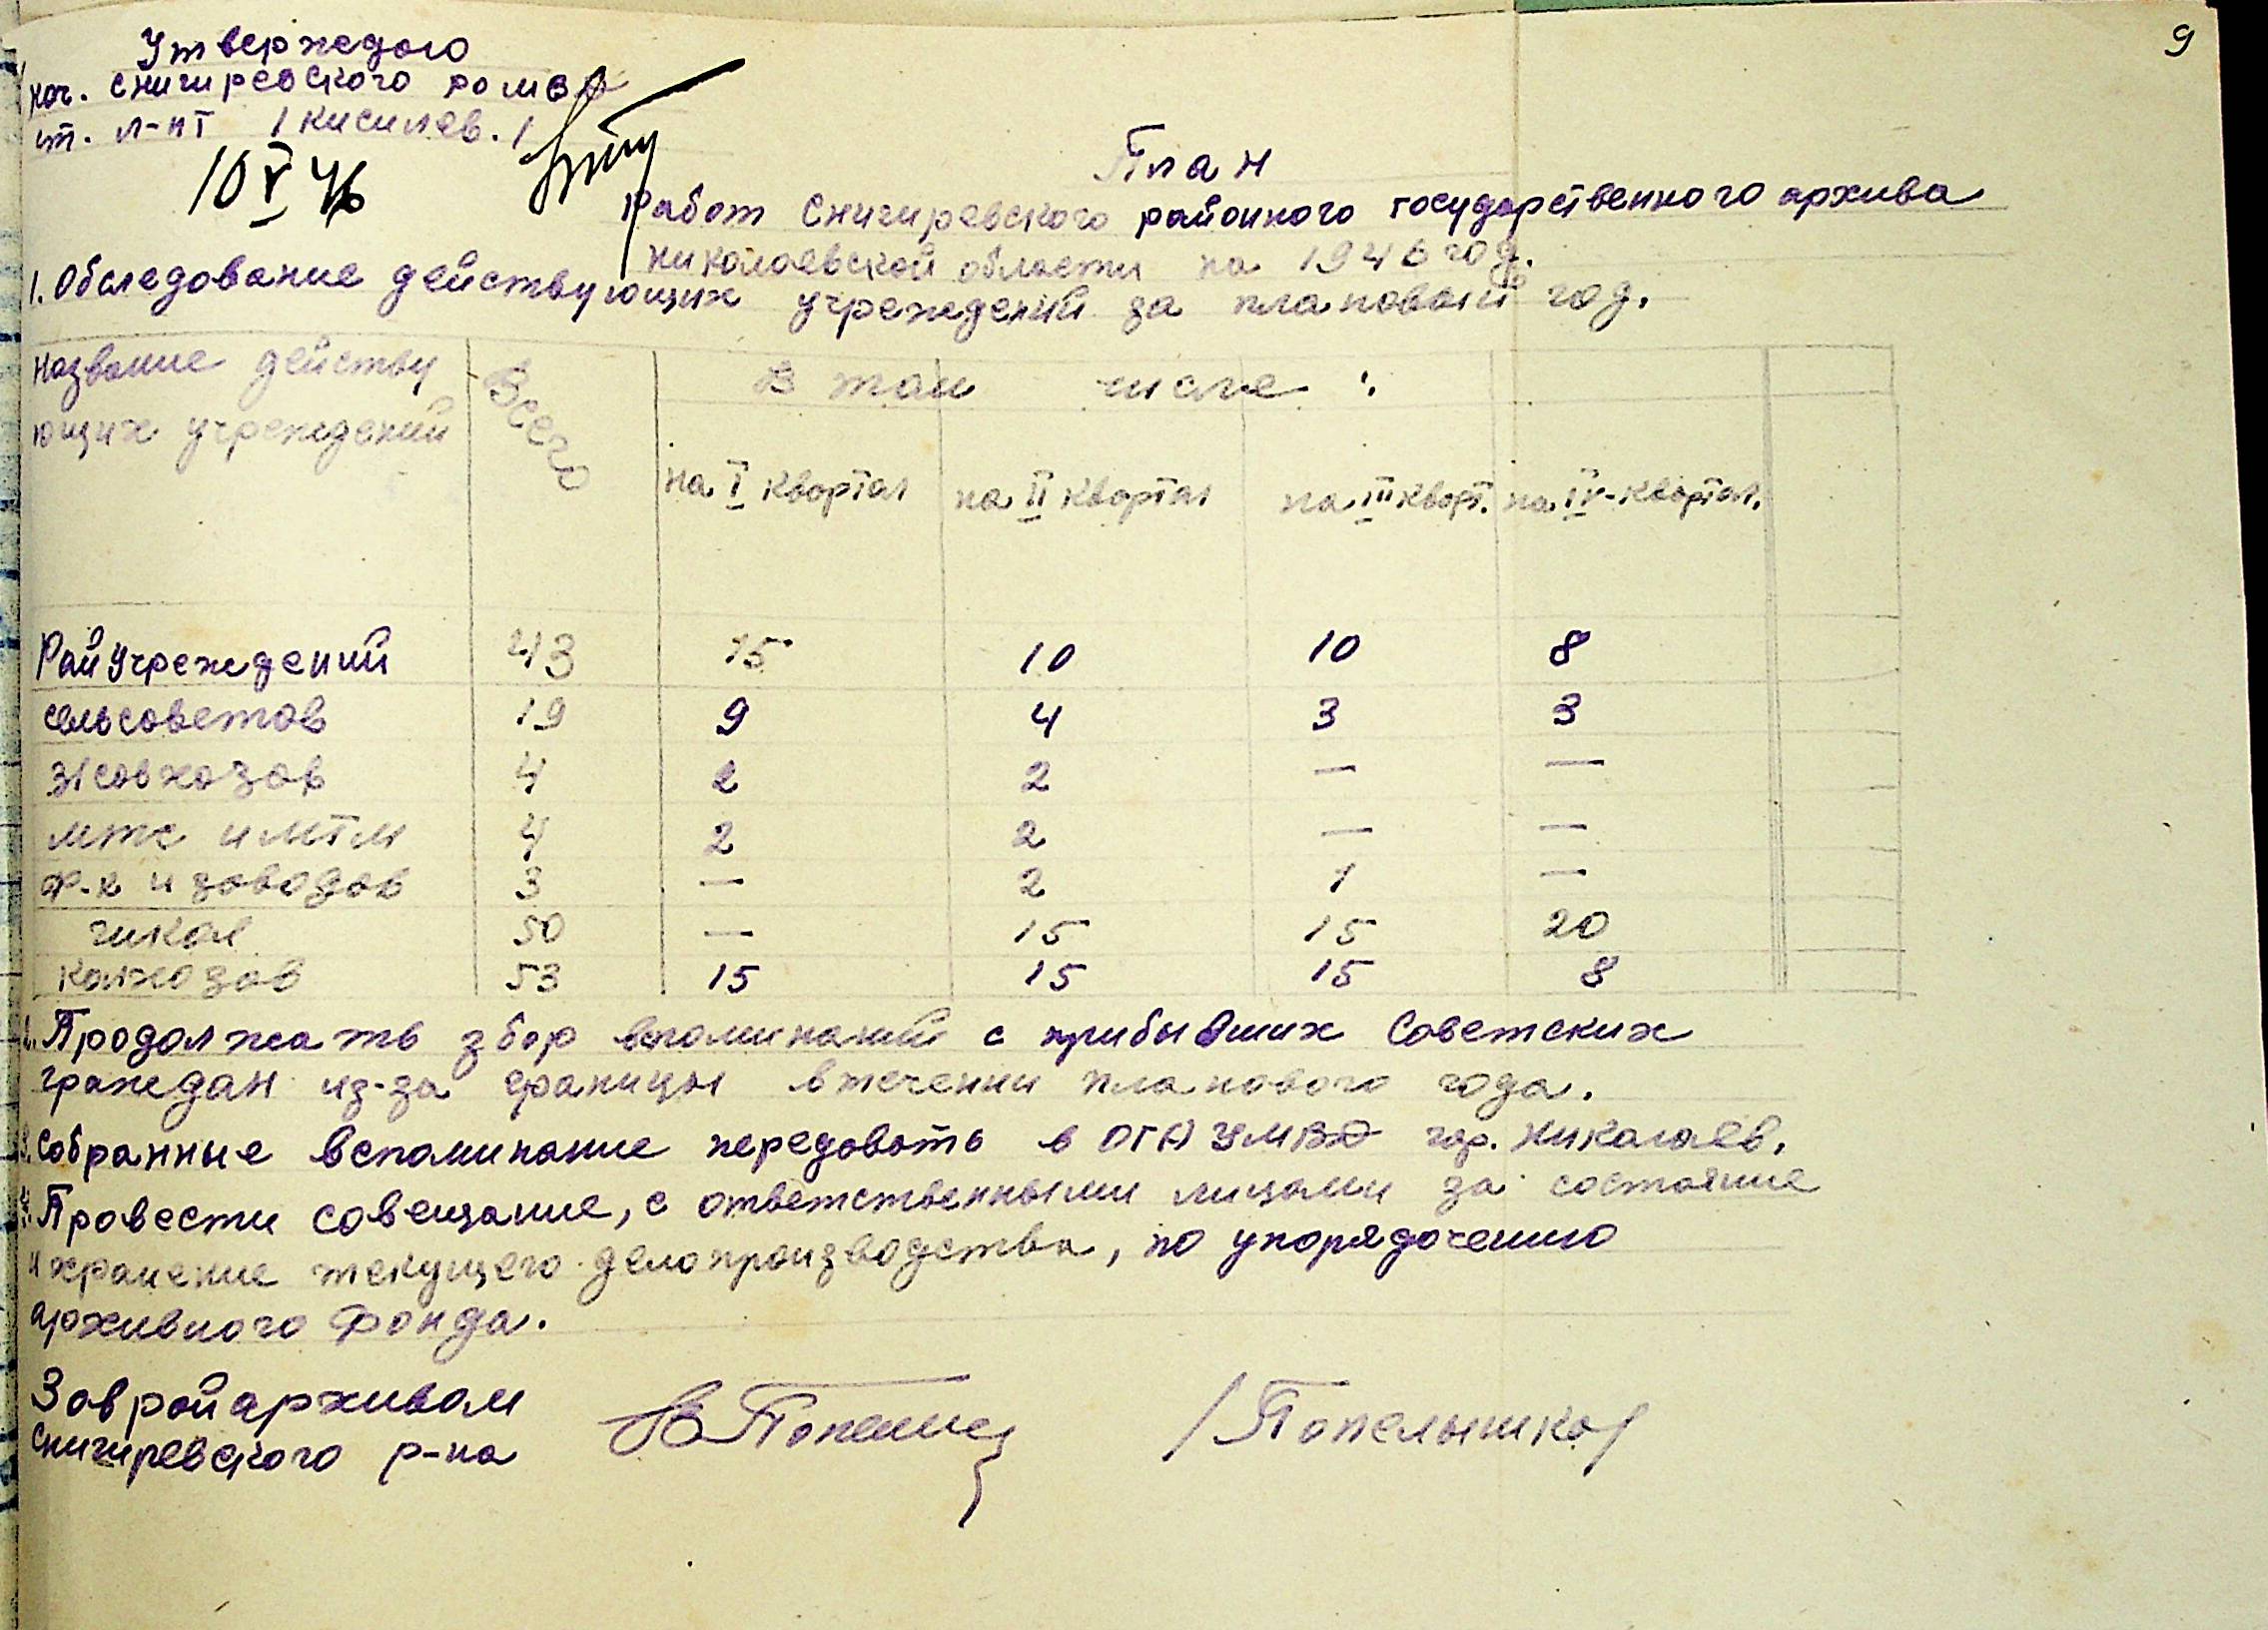 9
Утверждаю
нач. Снигиревского РОМВД
ст. л-нт /Кисилев./
10 V 46
План
работ Снигиревского районного государственного архива
Николаевской области на 1946 год.
1. Обследование действующих учреждений за плановый год.
Название действу
ющих учреждений
Всего
В том числе:
на I квартал
на II квартал
на III кварт.
на IV-квартал.
Райучреждений 43 15 10 10 8
сельсоветов 19 9 4 3 3
з/совхозов 4 2 2 — —
мтс и МТМ 4 2 2 — —
ф-к и заводов 3 — 2 1 —
школ 50 — 15 15 20
колхозов 53 15 15 15 8
2. Продолжать збор вспоминаний с прибывших Советских
граждан из-за границы втечении планового года.
3. Собранные вспоминание передовать в ОГА УМВД гор. Николаев.
4. Провести совещание, с ответственными лицами за состояние
и хранение текущего делопроизводства, по упорядочению
архивного Фонда.
Завройархивом
Снигиревского р-на
/Попельышко/